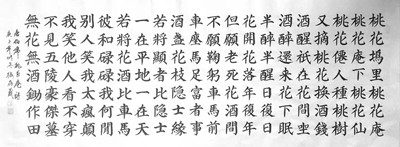 桃花塢里桃花庵
桃花庵下桃花仙
桃花仙人種桃樹
又摘桃花換酒錢
酒醒祇在花前坐
酒醉還來花下眠
半醒半醉日復日
花開花落年復年
但願老死花酒間
不願鞠躬車馬前
車塵馬足富者事
酒盞花枝隱士緣
若將顯者比隱士
一在平地一在天
若將花酒比車馬
彼和碌碌我何閒
別人笑我太瘋顛
我笑他人看不穿
不見五陵豪傑墓
無花無酒鋤作田
唐伯虎桃花庵詩